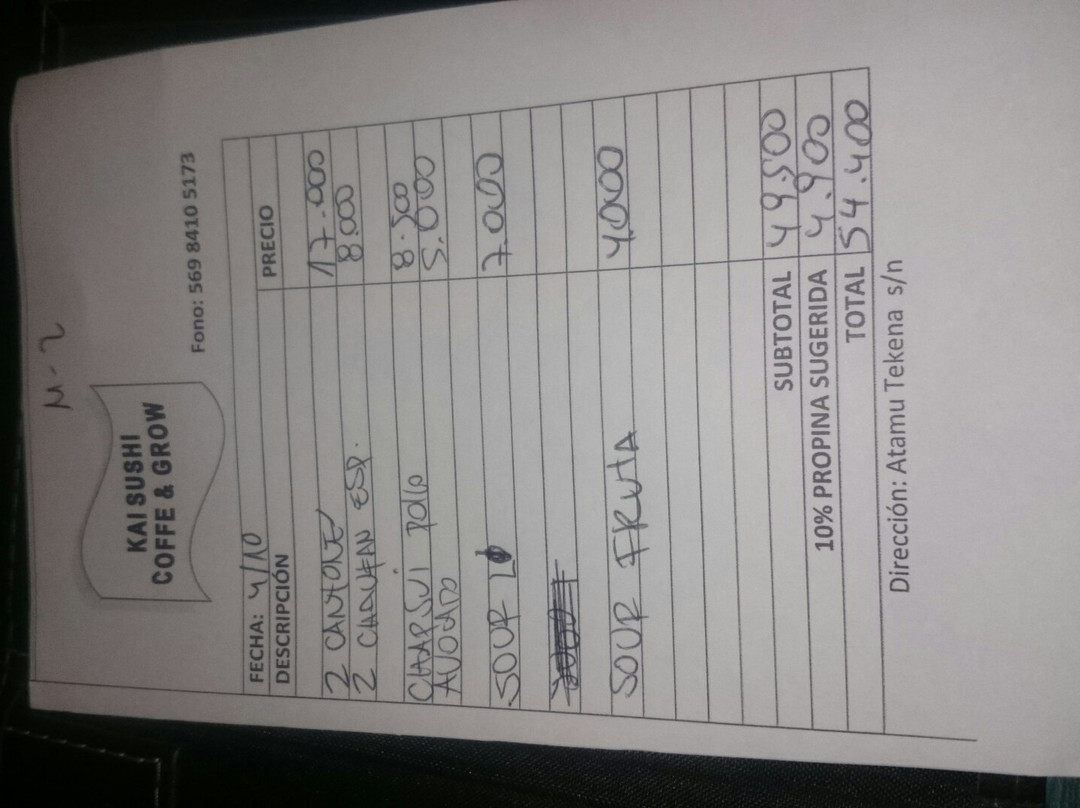 M-2
KAI SUSHI
COFFE & GROW
Fono: 569 8410 5173
FECHA: 4/10
DESCRIPCIÓN PRECIO
2 CANTONE 17.000
2 CHAUFAN ESP. 8.000
CHAPSUI POLLO 8.500
AVOCADO 5.000
SOUR 7.000
SOUR FRUTA 4.000
SUBTOTAL 49.500
10% PROPINA SUGERIDA 4.900
TOTAL 54.400
Dirección: Atamu Tekena s/n